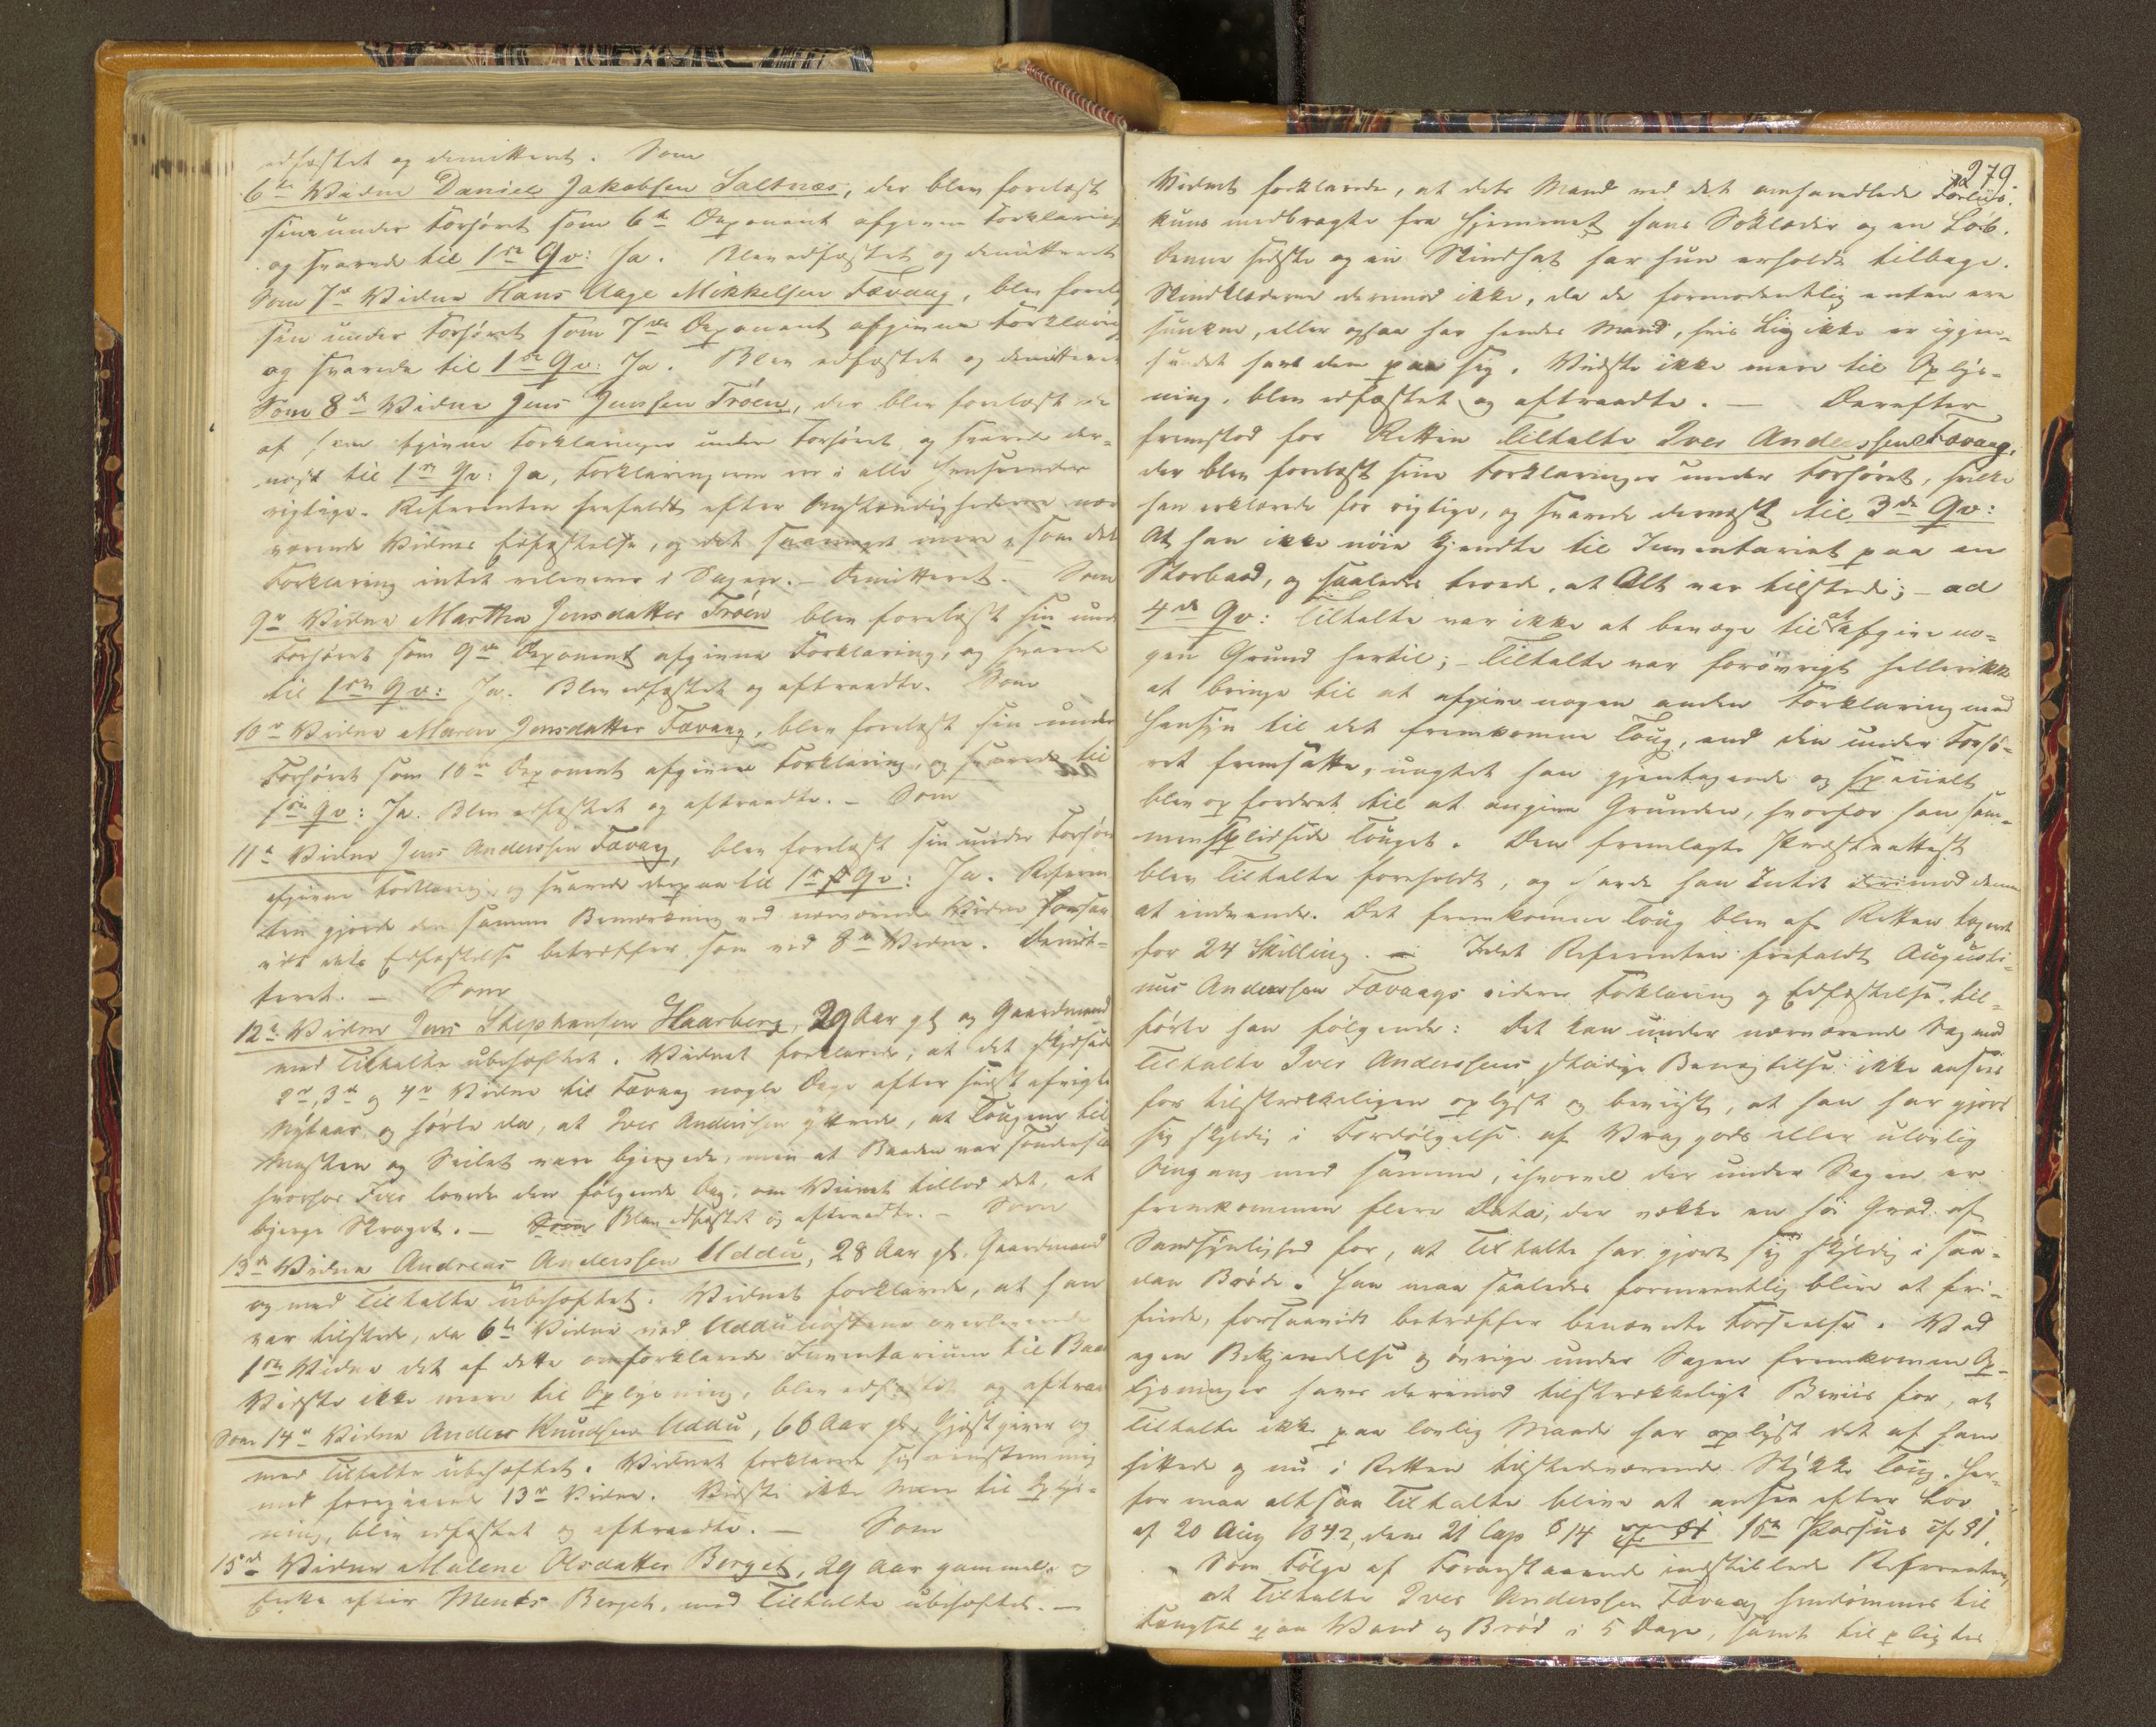 edfæstet og demitteret. Som
6te Vidne Daniel Jakobsen Saltnæs, der blev forelæst
sin under Forhøret som 6te Deponent afgivne Forklaring
og svarede til 1ste Qv: Ja. Blev edfæstet og demitteret
Som 7de Vidne Hans Aage Mikkelsen Fævaag, blev forel
sin under Forhøret som 7de Deponent afgivne Forklaring
og svarede til 1ste Qv: Ja. Blev edfæstet og demitteret
Som 8de Vidne Jens Jenssen Trøen, der blev forelæst de
af ham afgivne Forklaringer under Forhøret og svarede der-
næst til 1ste Qv: Ja, Forklaringerne er i alle Henseender
rigtige. Referenten frafaldt efter Omstændighederne nær
værende Vidnes Edfæstelse, og det saameget mere, som dets
Forklaring intet releverer i Sagen. - Demitteret. Som
9de Vidne Martha Jensdatter Trøen blev forelæst sin und
Forhøret som 9de Deponent afgivne Forklaring, og svarede
til 1ste Qv: Ja. Blev edfæstet og aftraadte. Som
10de Vidne Maren Jensdatter Fævaag, blev forelæst sin under
Forhøret som 10de Deponent afgivne Forklaring, og svarede til
1ste Qv: Ja. Blev edfæstet og aftraadte. - Som
11te Vidne Jens Anderssen Fævaag, blev forelæst sin under Forhør
afgivne Forklaring og svarede derpaa til 1ste Qv: Ja. Referen
ten gjorde den samme Bemærkning ved nærværende Vidne forsaa
vidt dets Edfæstelse betræffer som ved 8de Vidne. Demit-
teret. - Som
12te Vidne Jens Stephansen Haarberg, 29 Aar gl og Gaardmand
med Tiltalte ubeheftet. Vidnet forklarede, at det skydsede
2de, 3de og 4de Vidne til Fævaag nogle Dage efter sidst afvigte
Nytaar og hørte da, at Iver Anderssen yttrede, at Tougene til
Masten og Seilet vare bjergede, men at Baaden var sønderslaaet
hvorfor Iver lovede den følgende Dag, om Veiret tillod det, at
bjerge Vraget. - Som Blev edfæstet og aftraadte. - Som
13de Vidne Andreas Anderssen Uddu, 28 Aar gl. Gaardmand
og med Tiltalte ubeheftet. Vidnet forklarede, at han
var tilstede, da 6te Vidne ved Uddunøstene overleverede
1ste Vidne det af dette omforklarede Inventarium til Baad
Vidste ikke mere til Oplysning, blev edfæstet og aftraa
Som 14de Vidne Anders Knudsen Uddu, 66 Aar gl, Gjæstgiver og
med Tiltalte ubeheftet. Vidnet forklarede sig eenstemmig
med foregaaende 13de Vidne. Vidste ikke mere til Oplys-
ning, blev edfæstet og aftraadte. - Som
15de Vidne Malene Olsdatter Berget, 29 Aar gammel og
Enke efter Ments Berget, med Tiltalte ubeheftet. -
279.
Vidnet forklarede, at dets Mand ved det omhandlede Forliis
kuns medbragte fra Hjemmet hans Søklæder og en Lob.
Denne sidste og en Skindhat har hun erholdt tilbage.
Skindklæderne derimod ikke, da de formodentlig enten ere
sunkne, eller ogsaa har hendes Mand, hvis Liig ikke er igjen-
fundet havt dem paa sig. Vidste ikke mere til Oplys-
ning, blev edfæstet og aftraadte. - Derefter
fremstod for Retten Tiltalte Iver Anderssen Fævaag,
der blev forelæst sine Forklaringer under Forhøret, hvilke
han erklærede for rigtige, og svarede dernæst til 3de Qv:
At han ikke nøie kjendte til Inventariet paa en
Storbaad, og saaledes troede, at Alt var tilstede; - ad
4de Qv: Tiltalte var ikke at bevæge til at afgive no-
gen Grund hertil; - Tiltalte var forøvrigt heller ikke
at bringe til at afgive nogen anden Forklaring med
Hensyn til det fremkomne Toug, end den under Forhø-
ret fremsatte, uagtet han gjentagende og specielt
blev opfordret til at angive Grunden, hvorfor han sam-
mensplidsede Touget. Den fremlagte Præsteattest
blev Tiltalte foreholdt, og havde han Intet derimod denne
at indvende. Det fremkomne Toug blev af Retten taxeret
for 24 Skilling. - Idet Referenten frafaldt Augusti-
nus Anderssen Fævaags videre Forklaring og Edfæstelse, til-
førte han følgende: Det kan under nærværende Sag mod
Tiltalte Iver Anderssens stadige Benægtelse ikke ansees
for tilstrækkeligen oplyst og beviist, at han har gjort
sig skyldig i Fordølgelse af Vraggods eller ulovlig
Omgang med samme, ihvorvel der under Sagen er
fremkommen flere Data, der vække en høi Grad af
Sandsynlighed for, at Tiltalte har gjort sig skyldig i saa-
dan Brøde. Han maa saaledes formeentlig blive at fri-
finde, forsaavidt betræffer benævnte Forseelse. Ved
egen Bekjendelse og øvrige under Sagen fremkomne Op-
lysninger haves derimod tilstrækkeligt Beviis for, at
Tiltalte ikke paa lovlig Maade har oplyst det af ham
hittede og nu i Retten tilstedeværende Stykke Toug. Her-
for maa altsaa Tiltalte blive at ansee efter Lov
af 20 Aug 1842, dens 21 Cap § 14 1ste Passus cfr § 1.
Som Følge af Foranstaaende indstillede Referenten,
at Tiltalte Iver Anderssen Fævaag hendømmes til
Fængsel paa Vand og Brød i 5 Dage, samt tilpligtes